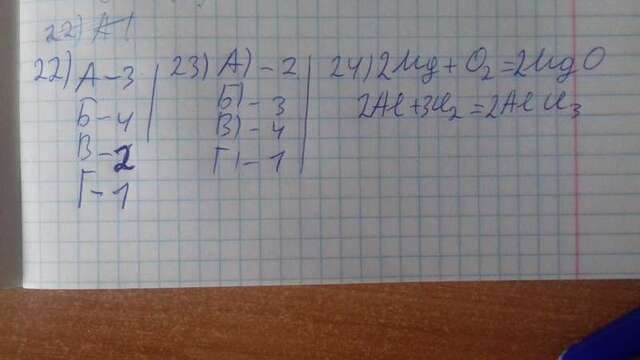 22) А 1
22) А – 3
Б – 4
В – 2
Г – 1
23) А) – 2
Б) – 3
В) – 4
Г) – 1
24) 2Mg + O₂ = 2MgO
2Al + 3Cl₂ = 2AlCl₃